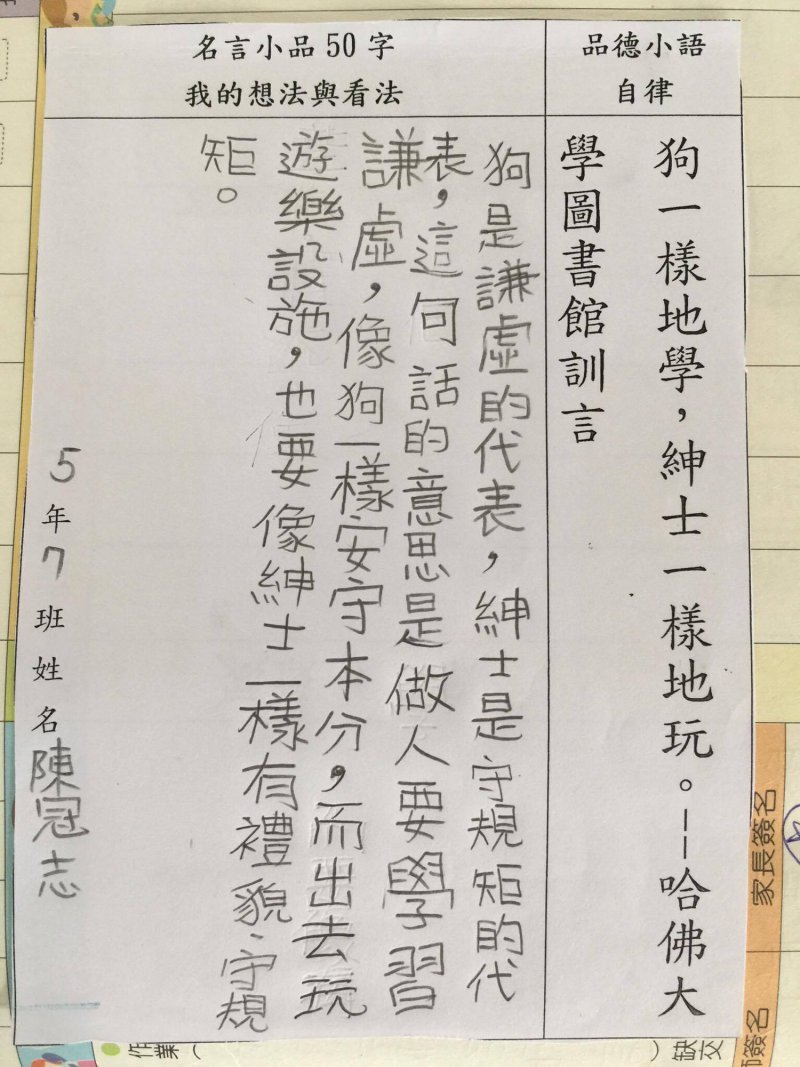 品德小語
自律
狗一樣地學，紳士一樣地玩。——哈佛大
學圖書館訓言
名言小品50字
我的想法與看法
狗是謙虛的代表，紳士是守規矩的代
表，這句話的意思是做人要學習
謙虛，像狗一樣安守本分，而出去玩
遊樂設施，也要像紳士一樣有禮貌、守規
矩。
5年7班姓名陳冠志
家長簽名
簽名
作業（
）缺交